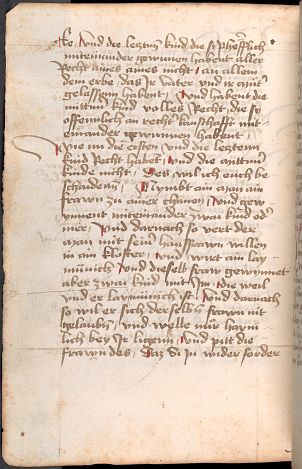 ke, Vnd die leztm kind die si pheflich
miteinander gewunen habent aller
Recht aines aines nicht, an allem
dem erbe, das ir vater vnd ir müter
gelassem habent, Vnd habent die
mittm kind volles Recht die sy
offennlich an recht kauschafft mit
einander gewunnen habent,
Wie nu die ersten vnd die leztenn
kind Recht habet, Vnd die mittmn
kinde nicht, Des wil ich euch be
schaiden, Nymbt ain man ain
frawn zu ainer chanen, Vnd gew
ynnent miteinander zwai kind oder
mer, Vnd darnach so vert der
man mit seinr hausfrawn willen
in ain kloster, Vnd wirt ain lay
münich, Vnd dieselb fraw gewynnet
aber zwai kind mit Im, die weil
vnd er laymünich ist, Vnd darnach
so wil er sich derselben frawn nit
gelaubn, vnd welle nur haym
lich bey Ir ligenn, Vnd pitt die
frawn des, Daz Si in wider vorder